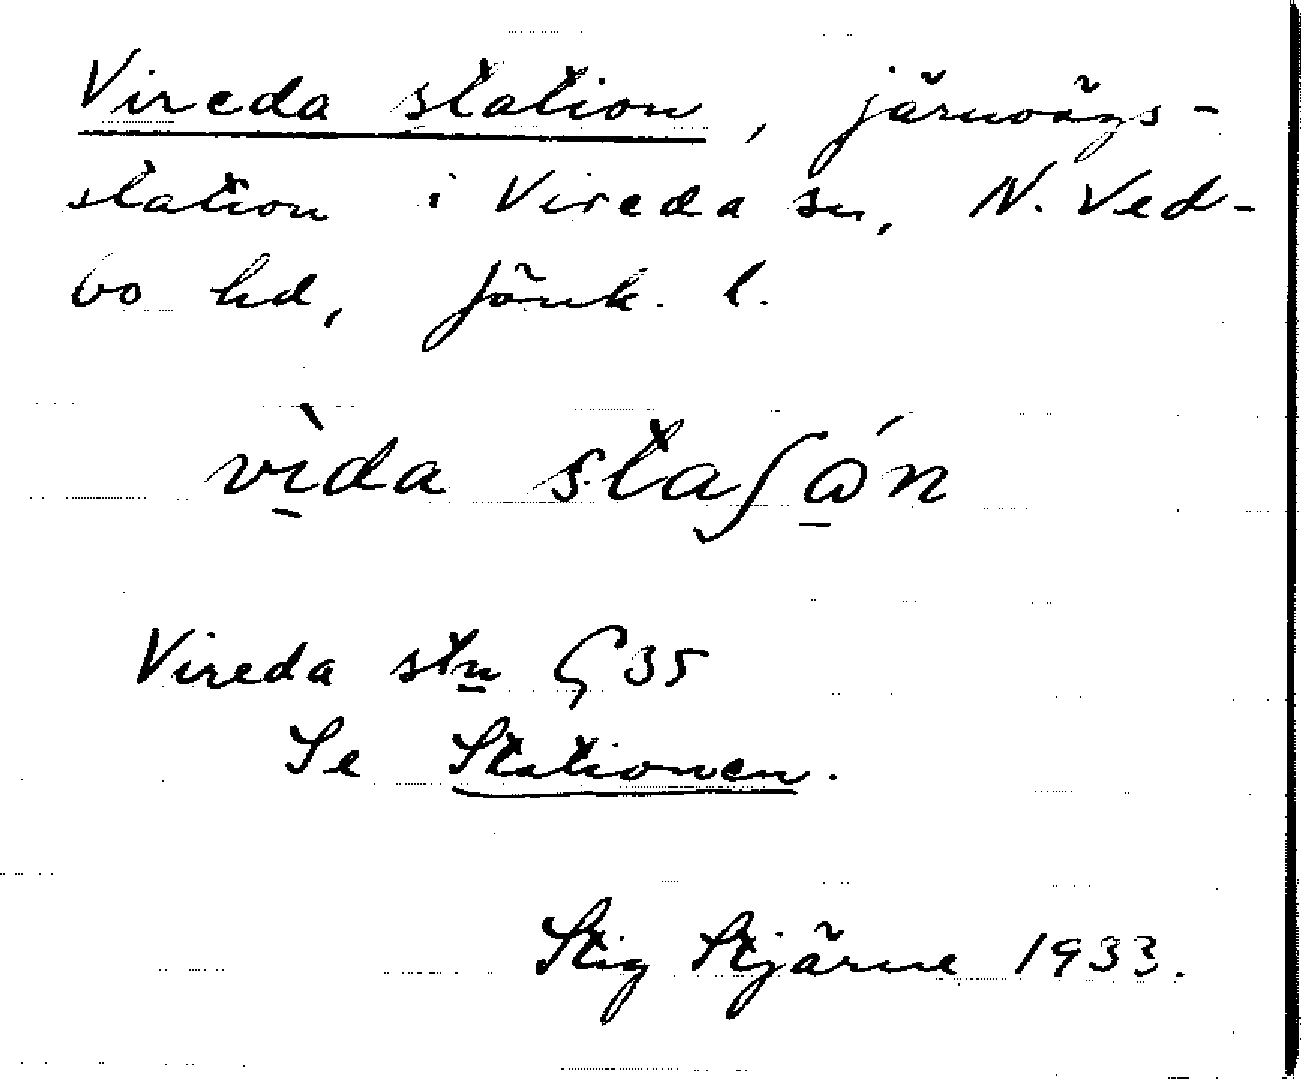 Vireda station, järnvägs-
station i Vireda sn, N. Ved-
bo hd, Jönk. l.
vì̱da staʃɷ̱́n
Vireda stn G 35
Se Stationen.
Stig Stjärne 1933.